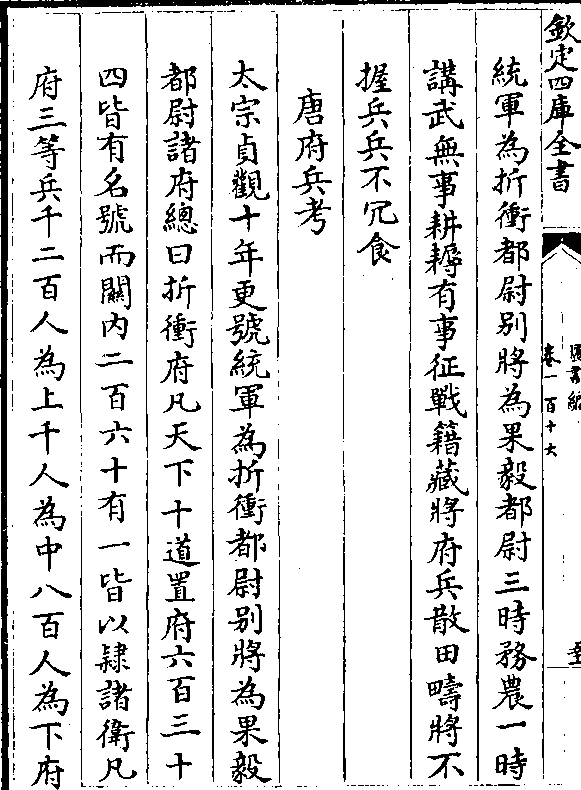 欽定四庫全書
圖書編
卷一百十六
統軍為折衝都尉别將為果毅都尉三時務農一時
講武無事耕耨有事征戰籍藏將府兵散田疇將不
握兵兵不冗食
唐府兵考
太宗貞觀十年更號統軍為折衝都尉别將為果毅
都尉諸府總曰折衝府凡天下十道置府六百三十
四皆有名號而關内二百六十有一皆以隸諸衛凡
府三等兵千二百人為上千人為中八百人為下府